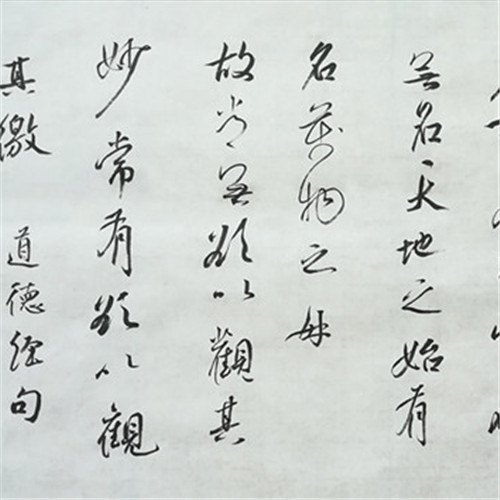 無名天地之始有
名萬物之母
故常無欲以觀其
妙常有欲以觀
其徼 道德經句